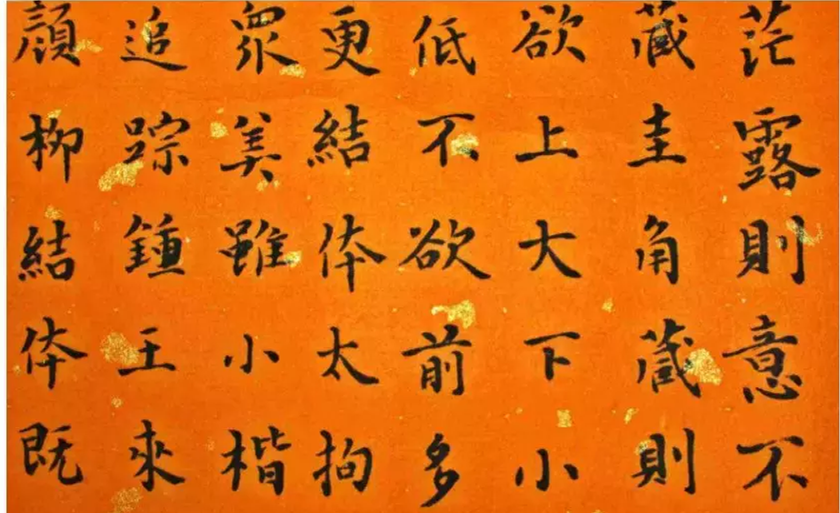 茫露則意不
藏圭角藏則
欲上大下小
低不欲前多
更結体太拘
眾美雖小楷
追踪鍾王來
顏柳結体既